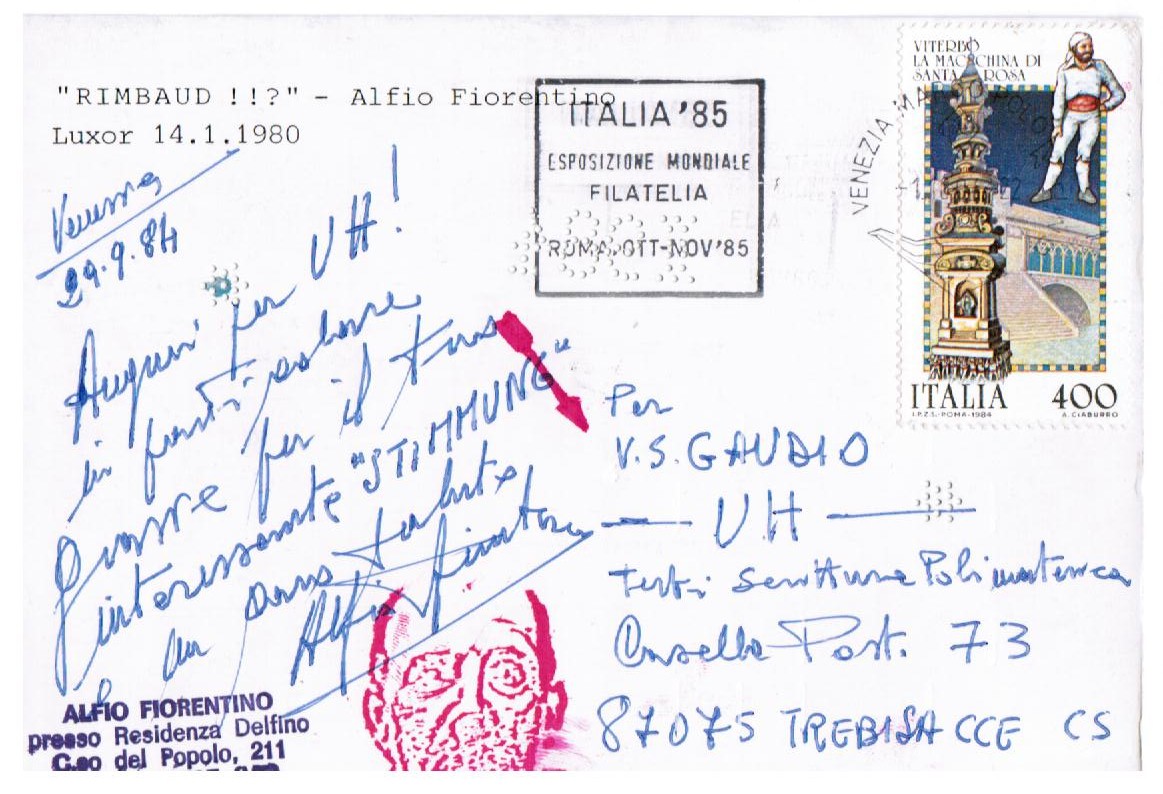 "RIMBAUD !!?" - Alfio Fiorentino
Luxor 14.1.1980
29.9.84
Auguri per UH!
in particolare
per il tuo
interessante "STIMMUNG"
un caro saluto
Alfio Fiorentino
ALFIO FIORENTINO
presso Residenza Delfino
C.so del Popolo, 211
ITALIA '85
ESPOSIZIONE MONDIALE
FILATELIA
ROMA OTT-NOV '85
VENEZIA
VITERBO
LA MACCHINA DI
SANTA ROSA
ITALIA 400
I.P.Z.S.-ROMA-1984 A. CIABURRO
Per
V.S. GAUDIO
UH
Testi Scrittura Polimaterica
Casella Post. 73
87075 TREBISACCE CS